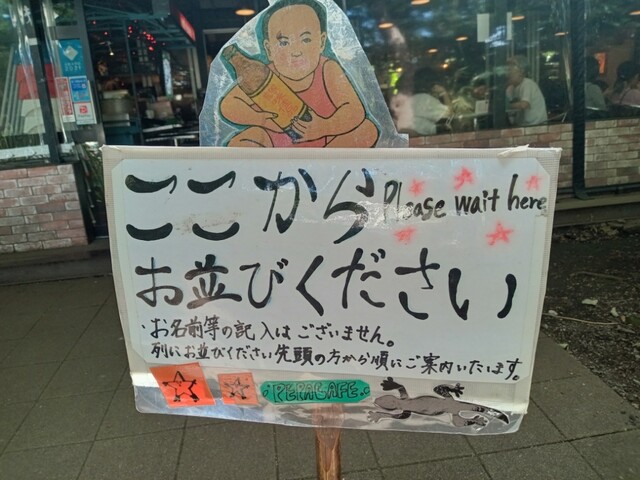 ここから Please wait here
お並びください
・お名前等の記入はございません。
列にお並びください先頭の方から順にご案内いたします。